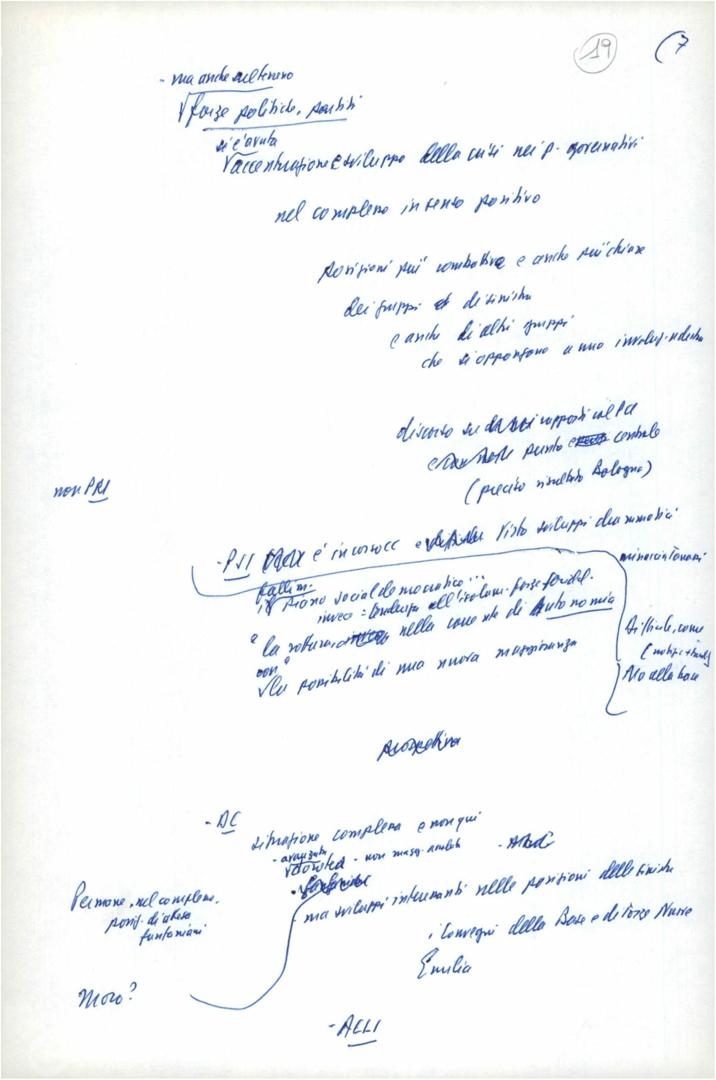 19 (7
- ma anche sul terreno
forze politiche, partiti
si è avuta
accentuazione e sviluppo della crisi nei p. governativi
nel complesso in senso positivo
posizioni più combattive e anche più chiare
dei gruppi di sinistra
e anche di altri gruppi
che si oppongono a una involuz. a destra
discorso su rapporti col PCI
punto centrale
(preciso risultato Bologna)
non PRI
- PSI è in corso e visto sviluppi drammatici
fallim.
piano socialdemocratico...
invece = tendenza all'
"la rottura nella corrente di Autonomia
con"
la possibilità di una nuova maggioranza
minoranza
difficile, come
No alla base
prospettiva
- DC
situazione complessa e non qui
- avanzata
dorotea - non magg. assoluta
- ma sviluppi interessanti nelle posizioni delle sinistre
i Convegni della Base e di Forze Nuove
Emilia
Permane, nel complesso,
posiz. di attesa
fanfaniani
Moro?
- ACLI